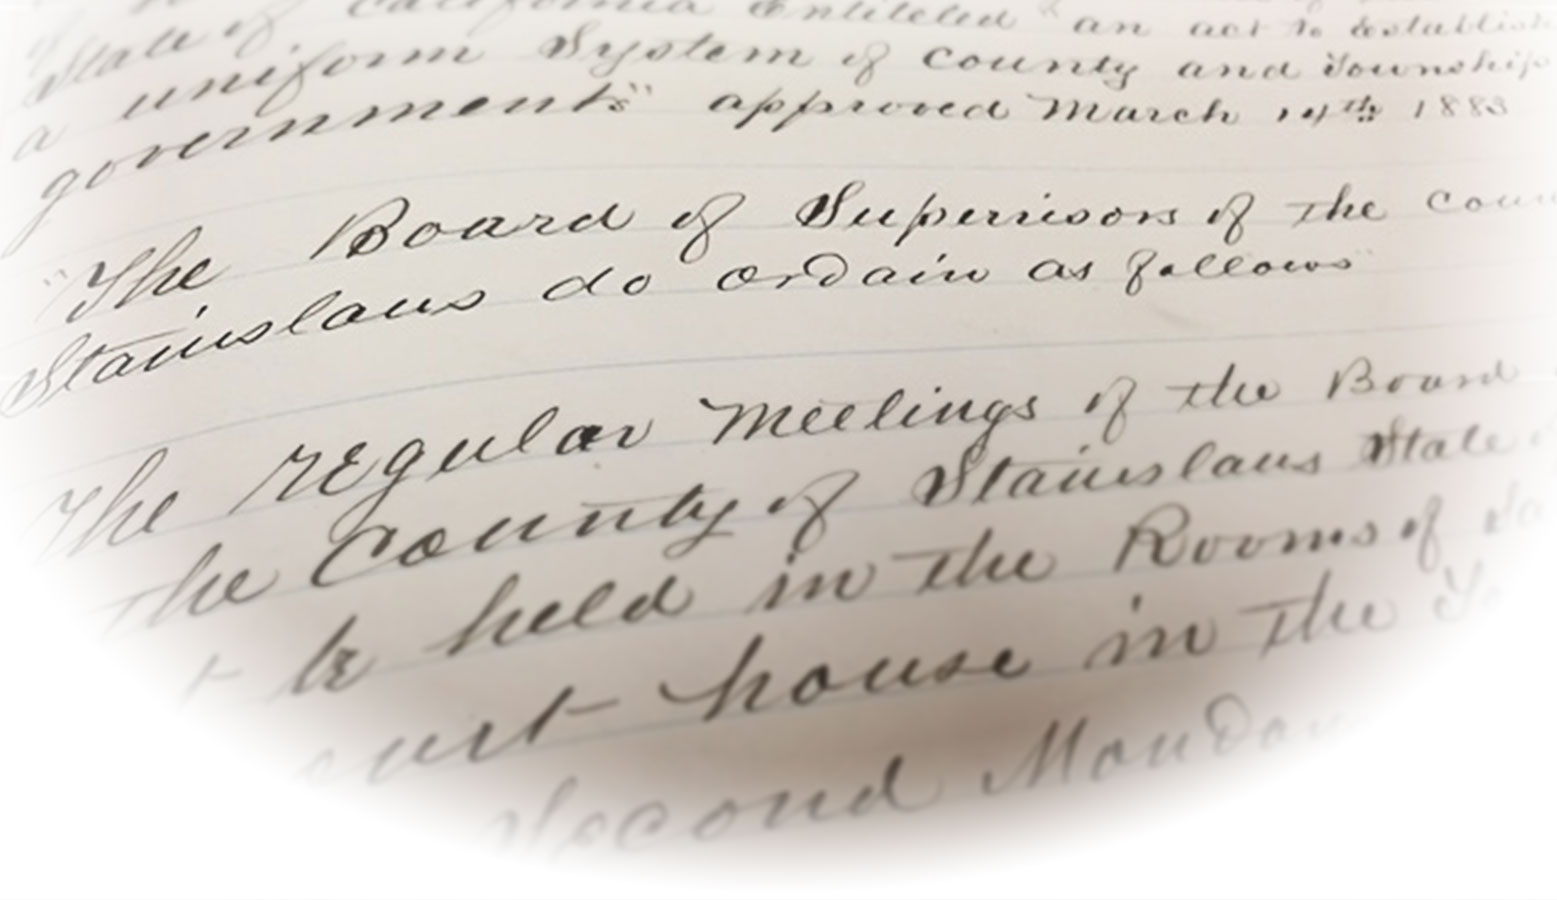 State of California Entitled "an act to establish
a uniform System of County and Township
governments" approved March 14th 1883
"The Board of Supervisors of the
Stanislaus do ordain as follows"
The regular Meetings of the Board
the County of Stanislaus State
be held in the Rooms of
house in the
Second Monday